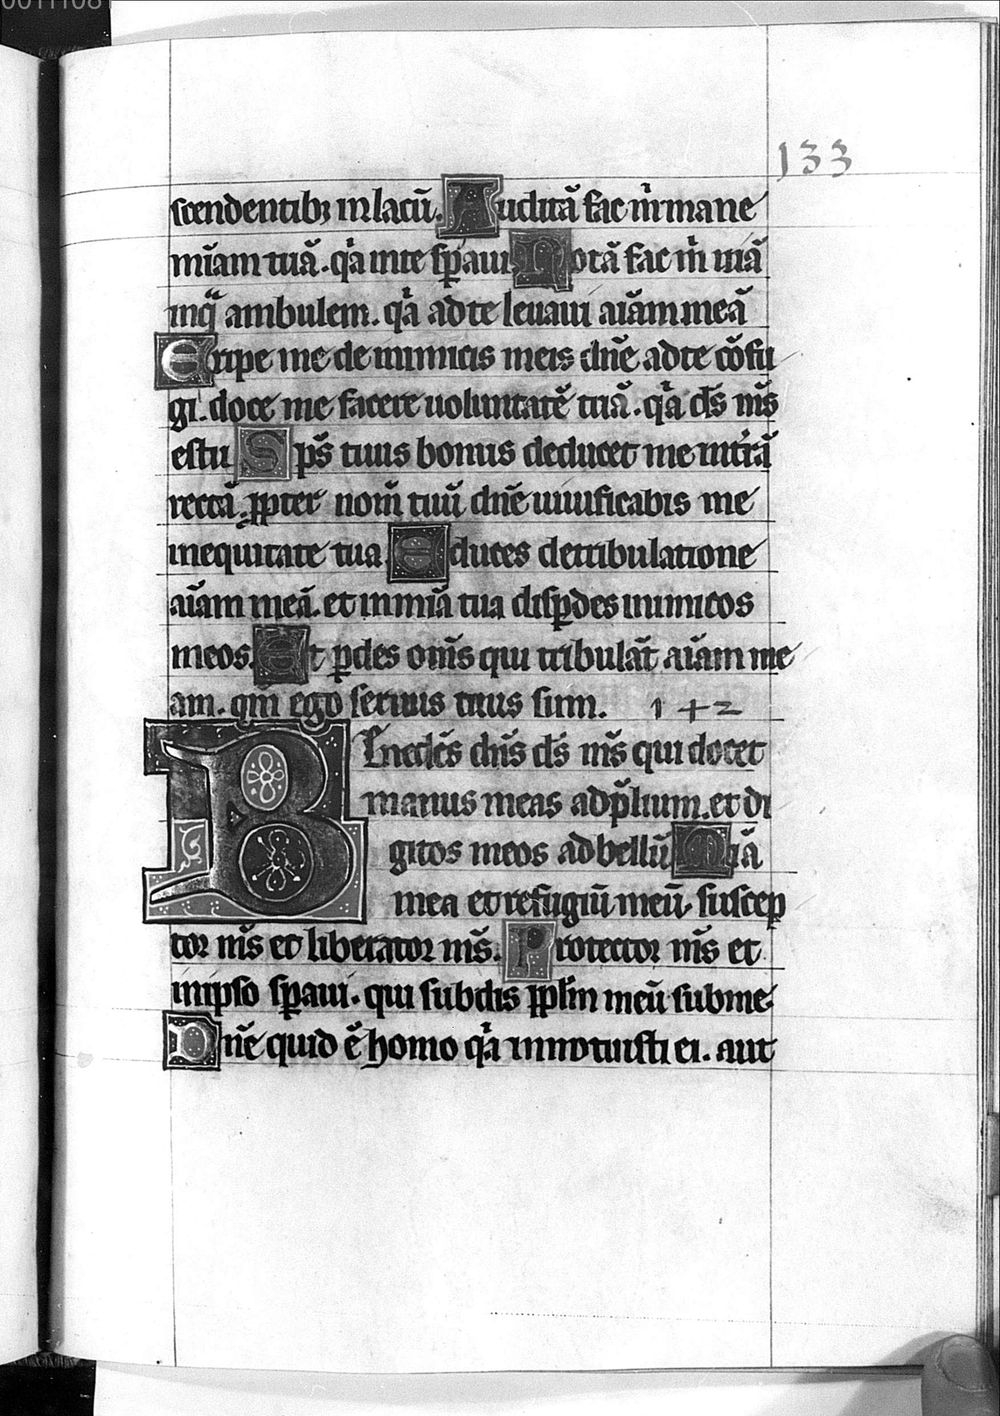 00111081
133
scendentibꝫ in lacū. Auditā fac m̍ mane
mīam tuā. qͣ in te sꝑaui Notā fac m̍ uiā
in qͣ ambulem. qͣ ad te leuaui aīam meā
Eripe me de inimicis meis dn̄e ad te cōfu
gi. doce me facere uoluntatē tuā. qͣ ds̄ ms̄
es tu Sps̄ tuus bonus deducet me in t̍rā
rectā. ꝓpter nom̄ tuū dn̄e uiuificabis me
in equitate tua Educes de tribulatione
aīam meā. et in mīa tua disꝑdes inimicos
meos. Et ꝑdes om̄s qui tribulāt aīam me
am. qm̄ ego seruus tuus sum. 142
Benedc̄s dn̄s ds̄ ms̄ qui docet
manus meas ad p̄lium. et di
gitos meos ad bellū Mīa
mea et refugiū meū. suscep
tor ms̄ et liberator ms̄. Protector ms̄ et
in ipso sꝑaui. qui subdis ꝓplm̄ meū sub me.
Dn̄e quid ē homo qͣ innotuisti ei. aut